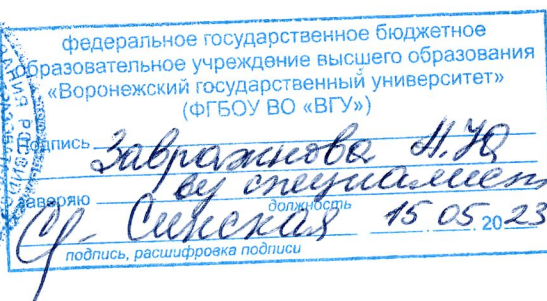 федеральное государственное бюджетное
образовательное учреждение высшего образования
«Воронежский государственный университет»
(ФГБОУ ВО «ВГУ»)
Подпись Завражнова А.Ю
заверяю вед специалист
должность
Синская 15 05 20 23
подпись, расшифровка подписи